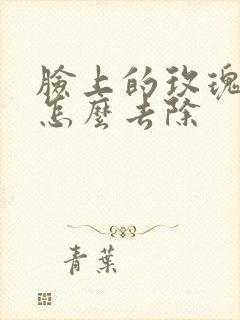 臉上的玫瑰
怎麼去除
青葉